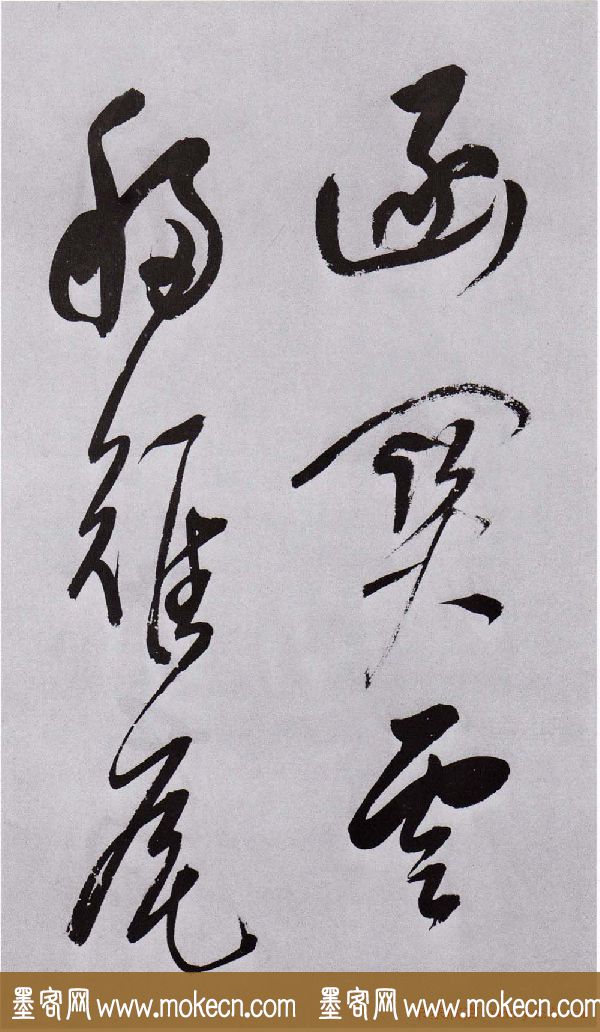 函關雲
移雉尾
墨客网 www.mokecn.com 墨客网 www.mokecn.com